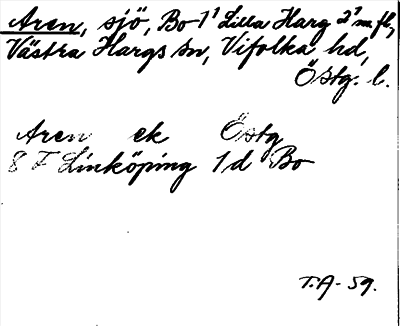 Aren, sjö, Bo 1¹ Lilla Harg 2¹ m.fl.,
Västra Hargs sn, Vifolka hd,
Östg. l.
Aren ek Östg
8 F Linköping 1d Bo
T.A. 59.